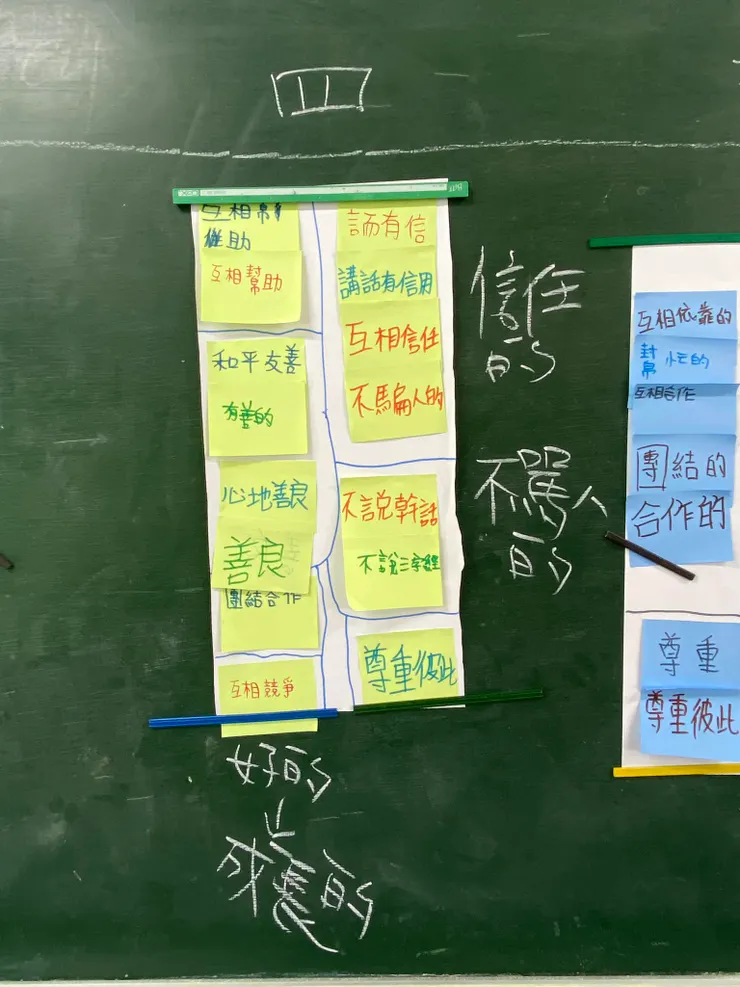 四
互相幫
助
互相幫助
和平友善
有善的
心地善良
善良
團結合作
互相競爭
言而有信
講話有信用
互相信任
不騙人的
不說幹話
不說三字經
尊重彼此
信任
的
不罵人
的
好的
成長的
互相依靠的
幫忙的
互相合作
團結的
合作的
尊重
尊重彼此